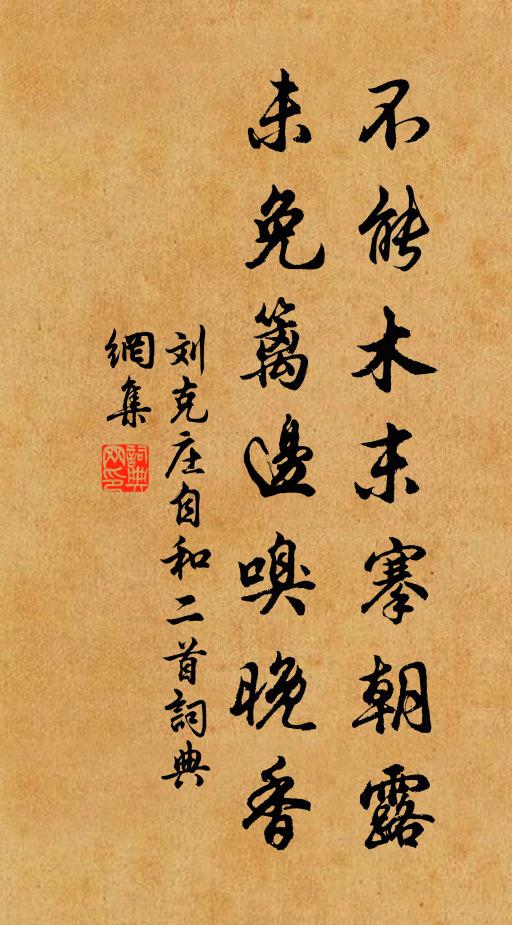 不能木末搴朝露
未免篱邊嗅晚香
刘克庄自和二首詞典
網集
詞典
网印